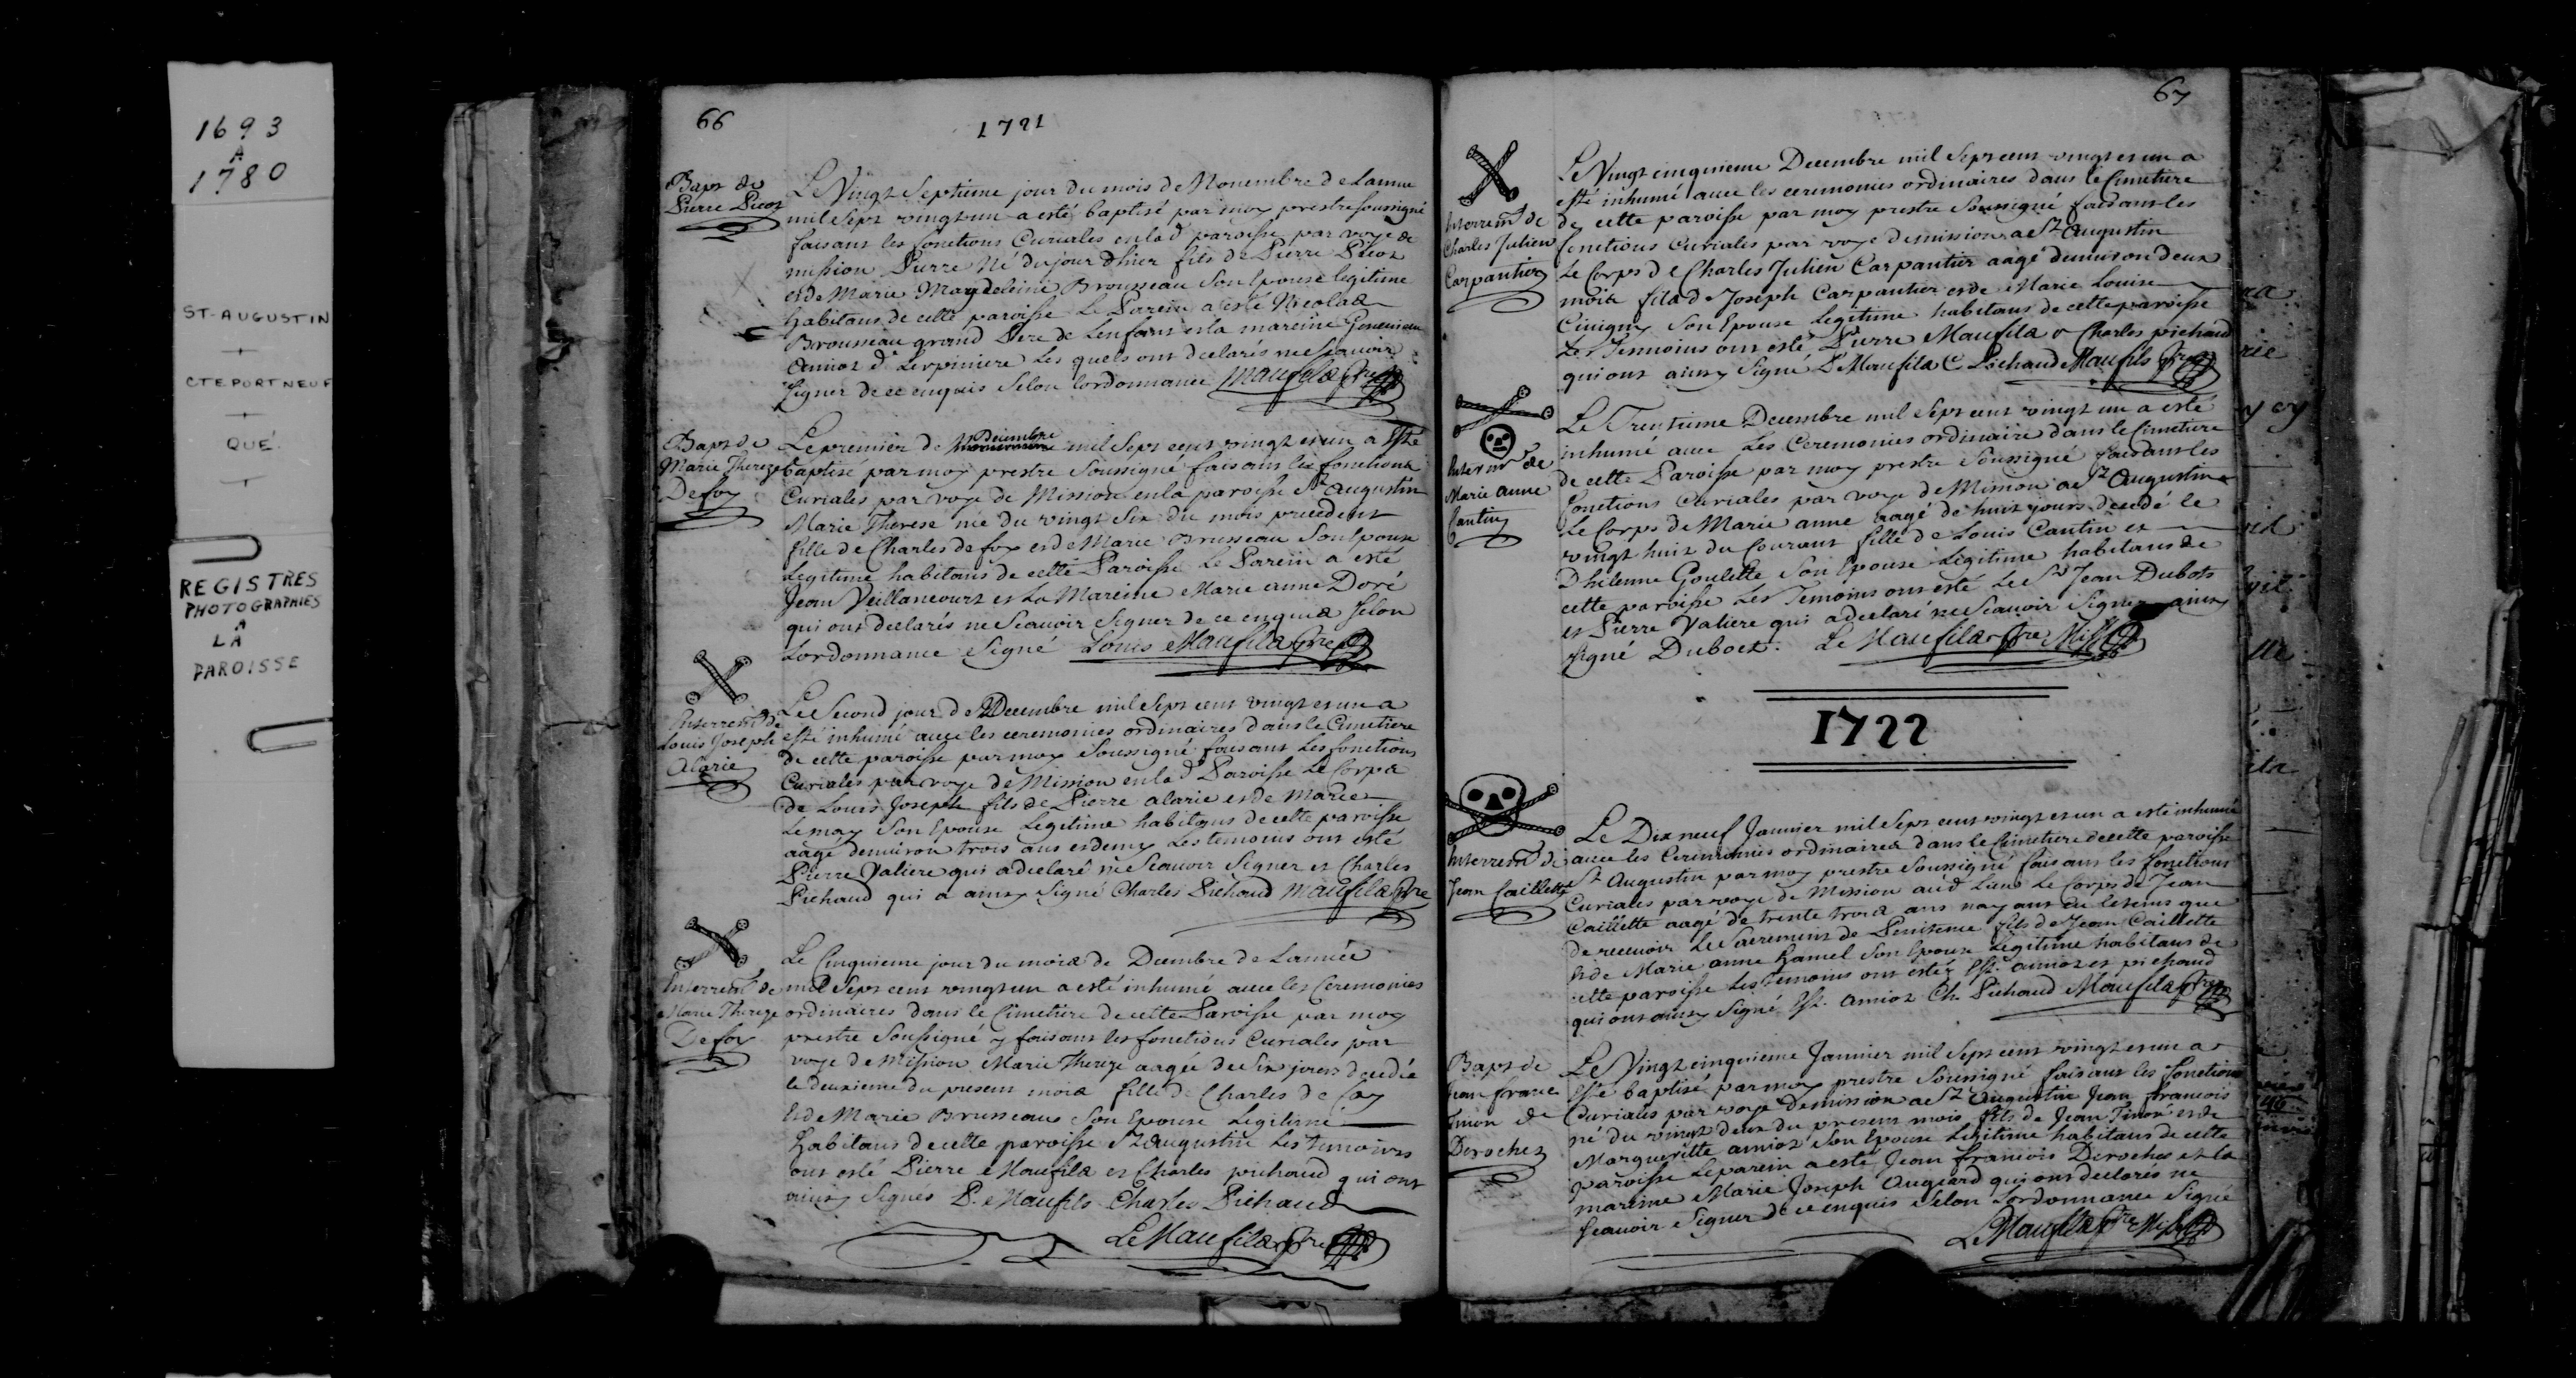 1693
A
1780
ST-AUGUSTIN
CTE PORTNEUF
QUÉ.
REGISTRES
PHOTOGRAPHIES
A
LA
PAROISSE
66
1721
Bapt de
Pierre Picot
Le Vingt Septieme jour du mois de Nouembre de Lannee
mil Sept vingt un a esté baptisé par moy prestre soussigné
faisant les fonctions Curiales en lad paroisse par voye de
mission Pierre Né du jour dhier fils de Pierre Picot
et de Marie Magdeleine Brousseau Son Epouse legitime
habitans de cette paroisse Le Parein a esté Nicolas
Brousseau grand Pere de Lenfant et la mareine Geneuieue
Amiot de Lerpiniere Les quels ont declarés ne Scauoir
Signer de ce enquis Selon lordonnance Maufils Ptre
Bapt de
Marie Thereze
Defoy
Le premier de Decembre mil Sept cent vingt et un a Esté
baptisé par moy prestre Soussigné faisant les fonctions
Curiales par voye de Mission en la paroisse St Augustin
Marie Therese née du vingt Six du mois precedent
fille de Charles de foy et de Marie Brusseau Son Epouse
Legitime habitans de cette Paroisse Le Parein a esté
Jean Veillancourt et La Mareine Marie anne Doré
qui ont declarés ne Scauoir Signer de ce enquis Selon
Lordonnance Signé Louis Maufils Ptre
Interremt de
Louis Joseph
Alarie
Le Second jour de Decembre mil Sept cent vingt et un a
esté inhumé auec les ceremonies ordinaires dans le Cimetiere
de cette paroisse par moy Soussigné faisant Les fonctions
Curiales par voye de Mission en lad Paroisse Le Corps
de Louis Joseph fils de Pierre alarie et de Marie
Lemay Son Epouse Legitime habitans de cette paroisse
aagé denuiron trois ans et demy Les temoins ont esté
Pierre Valiere qui a declaré ne Scauoir Signer et Charles
Pichaud qui a ainsy Signé Charles Pichaud Maufils Ptre
Interremt de
Marie Thereze
Defoy
Le Cinquieme jour du mois de Decembre de Lannée
mil Sept cent vingt un a esté inhumé auec les Ceremonies
ordinaires dans le Cimetiere de cette Paroisse par moy
prestre Soussigné y faisant les fonctions Curiales par
voye de Mission Marie Thereze aagée de Six jours decedée
le deuxieme du present mois fille de Charles de foy
et de Marie Brusseau Son Epouse Legitime
habitans de cette paroisse St Augustin Les temoins
ont esté Pierre Maufils et Charles pichaud qui ont
ainsy Signés P. Maufils Charles Pichaud
Le Maufils Ptre
67
Interremt de
Charles Julien
Carpantier
Le Vingt cinquieme Decembre mil Sept cent vingt et un a
esté inhumé auec les ceremonies ordinaires dans le Cimetiere
de cette paroisse par moy prestre Soussigné faisant les
fonctions Curiales par voye de mission a St Augustin
Le Corps de Charles Julien Carpantier aagé denuiron deux
mois fils de Joseph Carpantier et de Marie Louise
Cuigny Son Epouse Legitime habitans de cette paroisse
Les Temoins ont esté Pierre Maufils & Charles pichaud
qui ont ainsy Signé P Maufils C Pichaud Maufils Ptre
Interremt de
Marie anne
Cantin
Le Trentieme Decembre mil Sept cent vingt un a esté
inhumé auec Les Ceremonies ordinaire dans le Cimetiere
de cette Paroisse par moy prestre Soussigné faisant les
fonctions Curiales par voye de Mission a St Augustin
Le Corps de Marie anne aagé de huit jours decedé le
vingt huit du Courant fille de Louis Cantin et
Dhilenne Goulette Son Epouse Legitime habitans de
cette paroisse Les Temoins ont esté Le Sr Jean Dubots
et Pierre Valiere qui a declaré ne Scauoir Signer ainsy
Signé Duboct. Le Maufils Ptre Miss
1722
Interremt de
Jean Caillette
Le Dix neuf Januier mil Sept cent vingt et un a esté inhumé
auec les Ceremonies ordinaires dans le Cimetiere de cette paroisse
St Augustin par moy prestre Soussigné faisant les fonctions
Curiales par voye de Mission aud Lieu Le Corps de Jean
Caillette aagé de trente trois ans nayant eu le tems que
de receuoir Le Sacrement de Penitence fils de Jean Caillette
et de Marie anne hamel Son Epouse Legitime habitans de
cette paroisse Les temoins ont estéz Est. amiot et pichaud
qui ont ainsy Signé Est. Amiot Ch. Pichaud Maufils Ptre
Bapt de
Jean francs
Tinon de
Deroches
Le Vingt cinquieme Januier mil Sept cent vingt et un a
esté baptisé par moy prestre Soussigné faisant les fonctions
Curiales par voye de mission a St Augustin Jean francois
né du vingt deux du present mois fils de Jean Tinon et de
Margueritte amiot Son Epouse Legitime habitans de cette
paroisse Le parein a esté Jean francois Deroches et la
mareine Marie Joseph Augeard qui ont declarés ne
Scauoir Signer de ce enquis Selon Lordonnance Signé
Le Maufils Ptre Miss